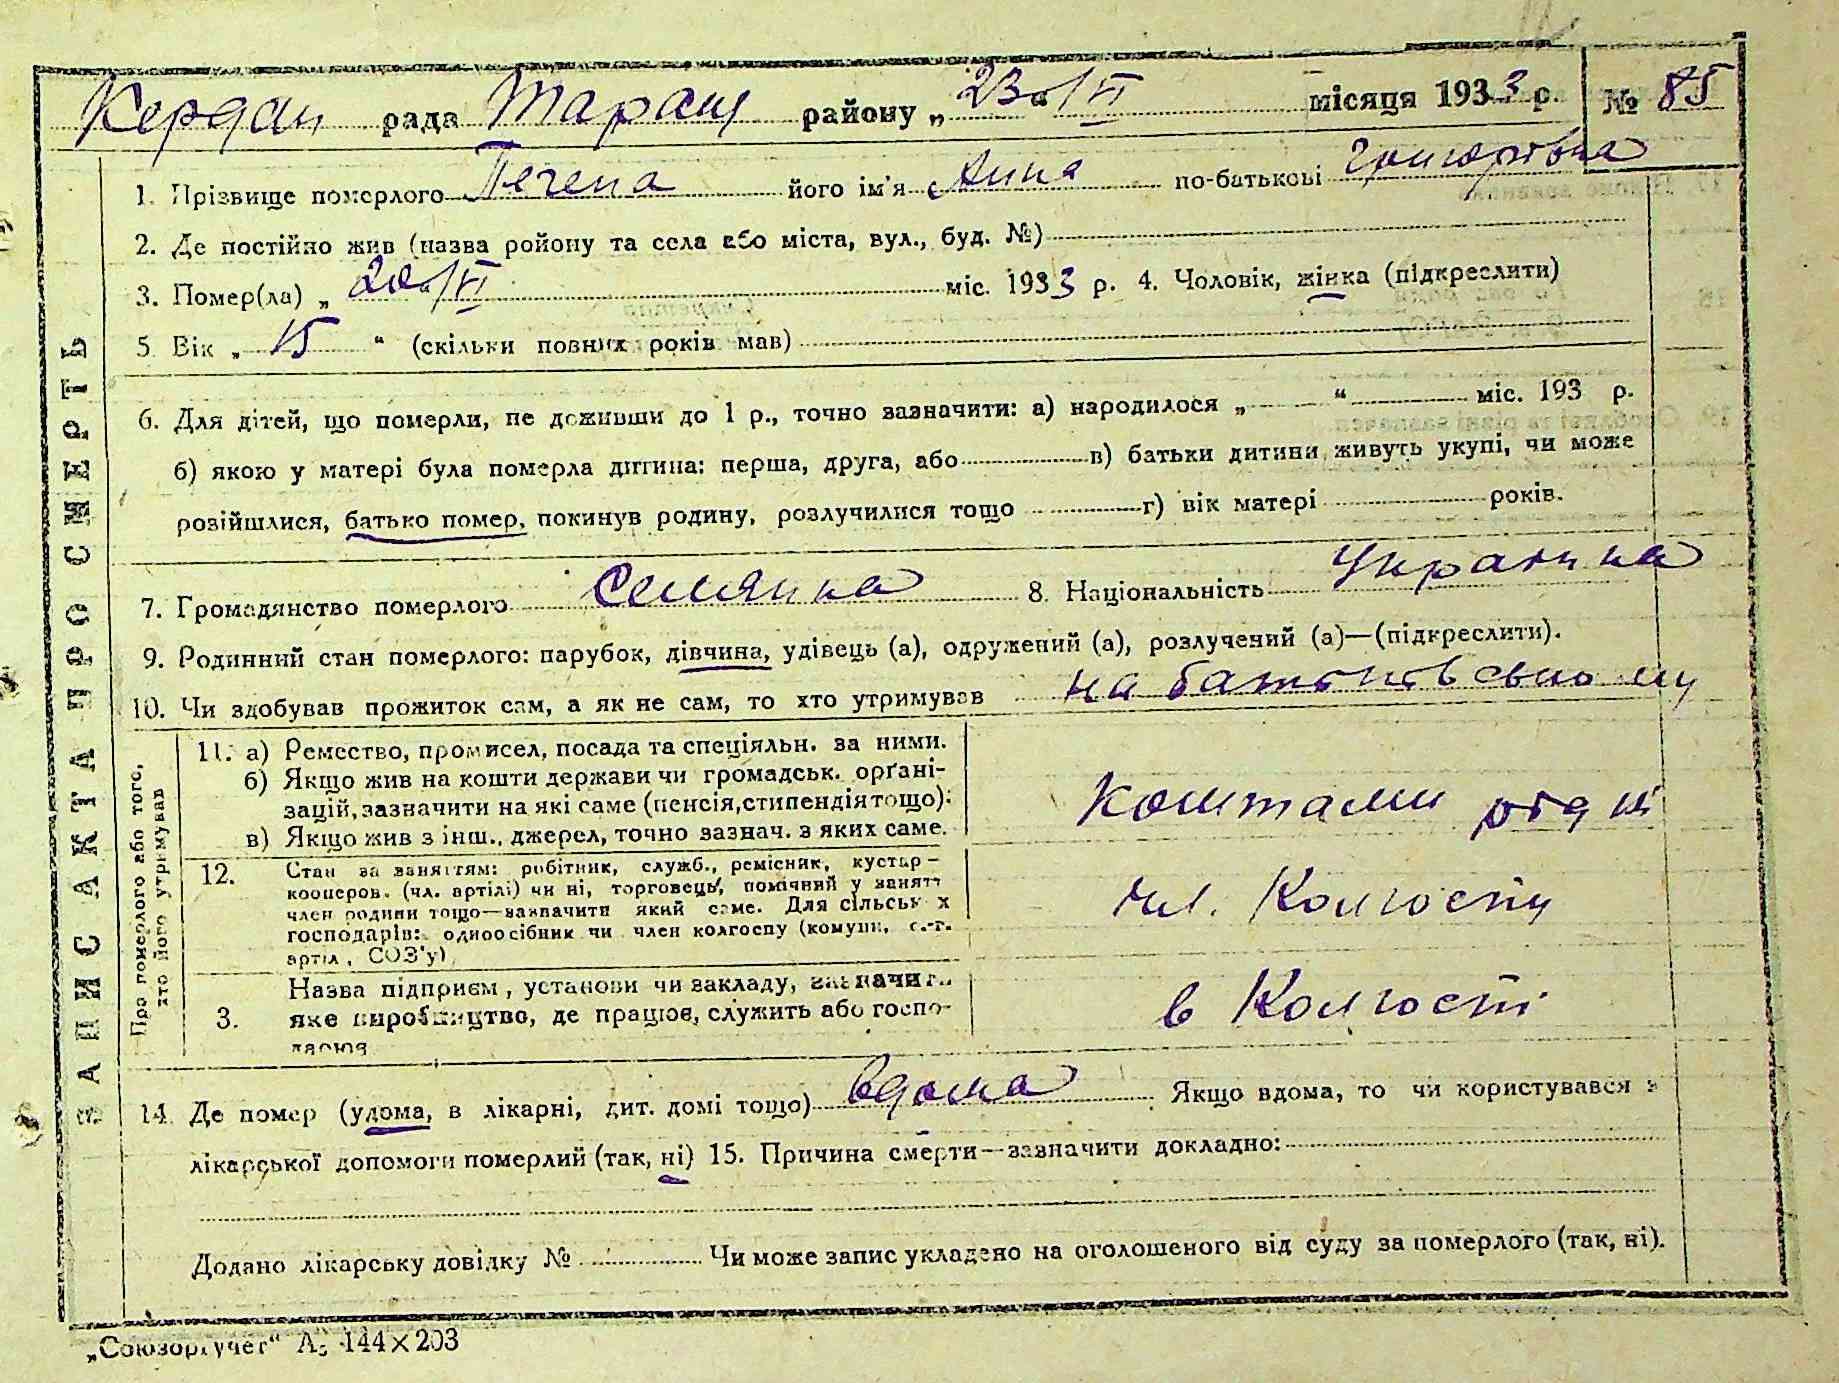 Кердан рада Таращ району „23“/VI місяця 1933 р. № 85
1. Прізвище померлого Печена його ім'я Анна по-батькові Григорівна
2. Де постійно жив (назва ройону та села або міста, вул., буд. №)
3. Помер(ла) „20“/VI міс. 1933 р. 4. Чоловік, жінка (підкреслити)
5 Вік „ 15 “ (скільки повних років мав)
6. Для дітей, що померли, не доживши до 1 р., точно зазначити: а) народилося „ “ міс. 193 р.
б) якою у матері була померла дитина: перша, друга, або в) батьки дитини живуть укупі, чи може
розійшлися, батько помер, покинув родину, розлучилися тощо г) вік матері років.
7. Громадянство померлого Селянка 8. Національність Українка
9. Родинний стан померлого: парубок, дівчина, удівець (а), одружений (а), розлучений (а)—(підкреслити).
10. Чи здобував прожиток сам, а як не сам, то хто утримував на батьковському
11. а) Ремество, промисел, посада та спеціяльн. за ними.
б) Якщо жив на кошти держави чи громадськ. орґані-
зацій, зазначити на які саме (пенсія, стипендія тощо):
в) Якщо жив з інш., джерел, точно зазнач. з яких саме.
Коштами
12. Стан за заняттям: робітник, служб., ремісник, кустар-
кооперов. (чл. артілі) чи ні, торговець, помічний у занятт
член родини тощо—зазначити який саме. Для сільськ х
господарів: одноосібник чи член колгоспу (комуни, с.-г.
артіл, СОЗ'у)
чл. Колгоспу
3. Назва підприєм, установи чи закладу, зазначити
яке виробництво, де працює, служить або госпо-
дарює
в Колгоспі
14. Де помер (удома, в лікарні, дит. домі тощо) вдома Якщо вдома, то чи користувався з
лікарської допомоги померлий (так, ні) 15. Причина смерти—зазначити докладно:
Додано лікарську довідку № Чи може запис укладено на оголошеного від суду за померлого (так, ні).
„Союзоргучет“ А5 144×203
ЗАПИС АКТА ПРО СМЕРТЬ
Про померлого або того,
хто його утримував